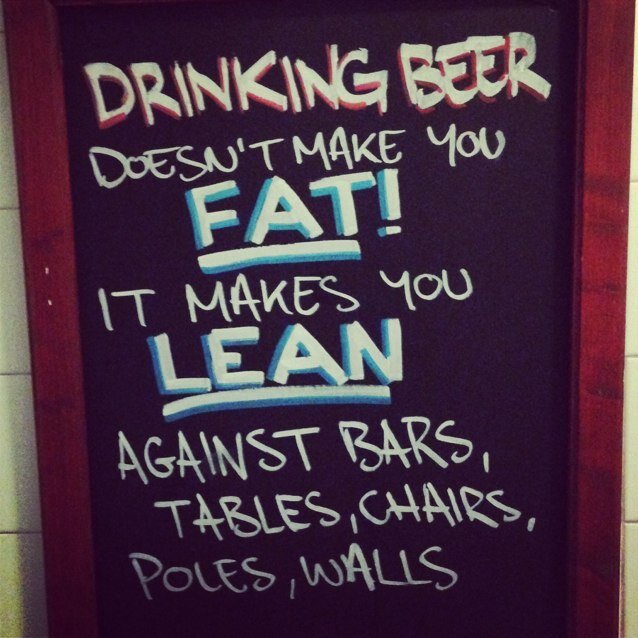 DRINKING BEER
DOESN'T MAKE YOU
FAT!
IT MAKES YOU
LEAN
AGAINST BARS,
TABLES, CHAIRS,
POLES, WALLS